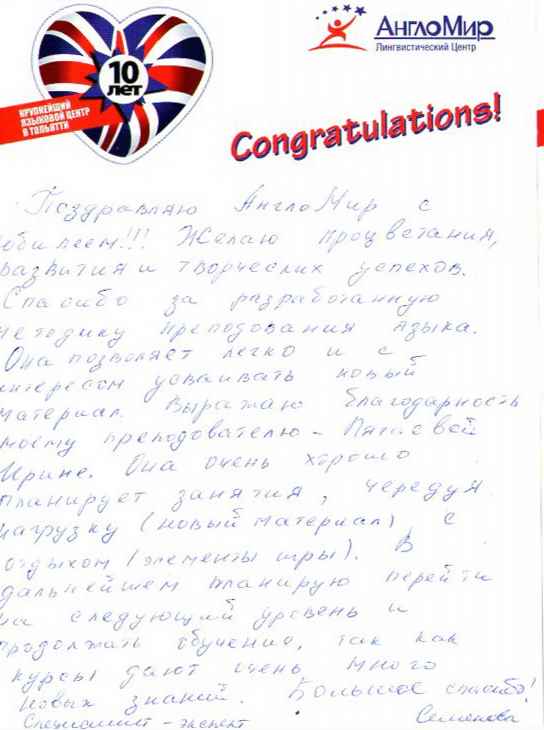 10
ЛЕТ
КРУПНЕЙШИЙ
ЯЗЫКОВОЙ ЦЕНТР
В ТОЛЬЯТТИ
АнглоМир
Лингвистический Центр
Congratulations!
Поздравляю АнглоМир с
юбилеем!!! Желаю процветания,
развития и творческих успехов.
Спасибо за разработанную
методику преподования языка.
Она позволяет легко и с
интересом усваивать новый
материал. Выражаю благодарность
моему преподователю -
Ирине. Она очень хорошо
планирует занятия, чередуя
нагрузку (новый материал) с
отдыхом (элементы игры). В
дальнейшем планирую перейти
на следующий уровень и
продолжать обучение, так как
курсы дают очень много
новых знаний. Большое спасибо!
Специалист - эксперт Семенова